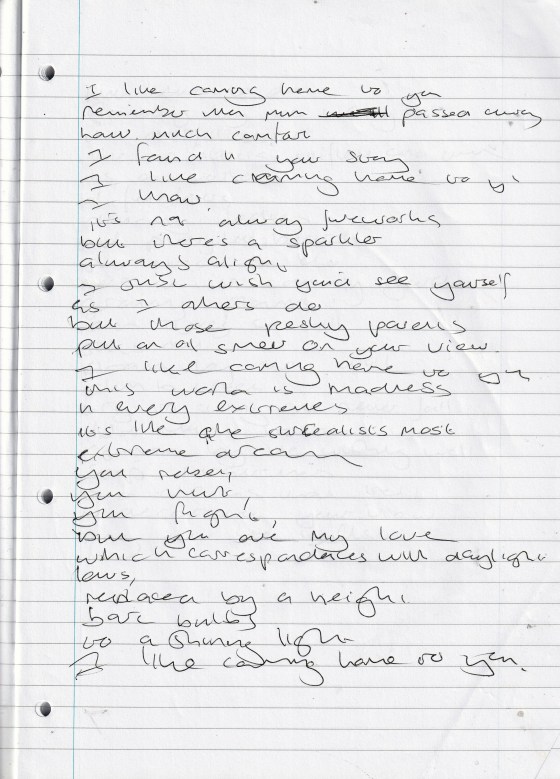 I like coming home to you
remember when mum passed away
how much comfort
I found in your
I like coming home to you
I know
it's not always fireworks
but there's a sparkler
always alight,
I wish you'd see yourself
as I others do
but those pesky parents
put an oil smear on your view.
I like coming home to you
this world is madness
in every extremes
it's like the surrealists most
extreme dream
you
you
you fight,
but you are my love
which correspondances with daylight
laws,
replaced by a height.
bare bulbs
to a shining light
I like coming home to you.